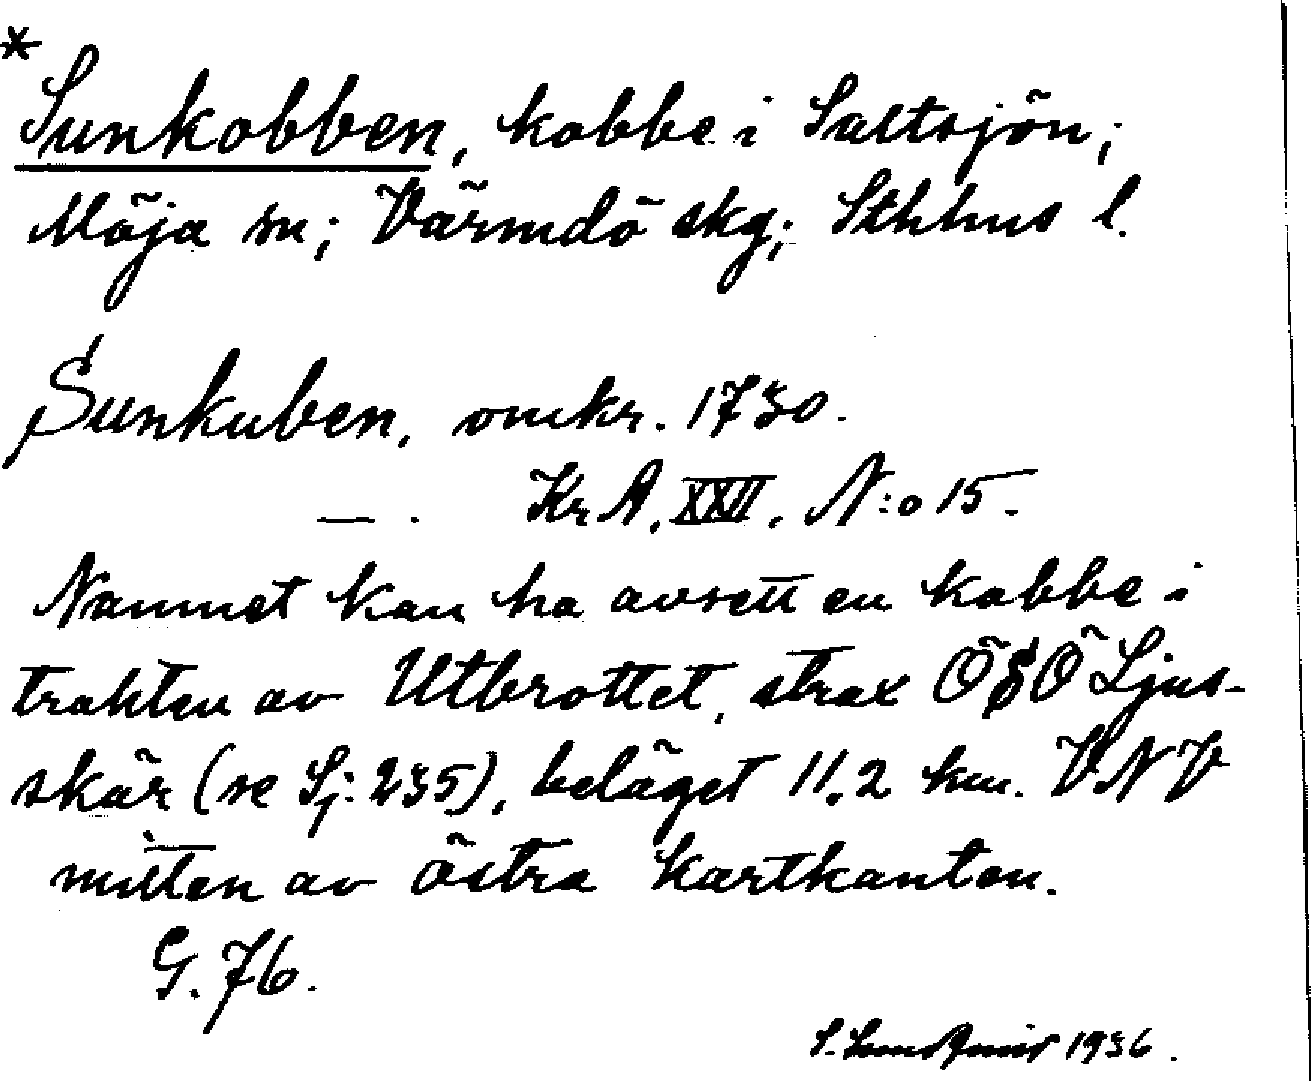 *
Sunkobben, kobbe i Saltsjön;
Möja sn; Värmdö skg; Sthlms l.
Sunkuben, omkr. 1730.
— . Kr A, XXII, N:o 15.
Namnet kan ha avsett en kobbe i
trakten av Utbrottet, strax ÖSÖ Ljus-
skär (se Sj: 235), beläget 11,2 km. VNV
mitten av östra kartkanten.
G. 76.
S. 1936.